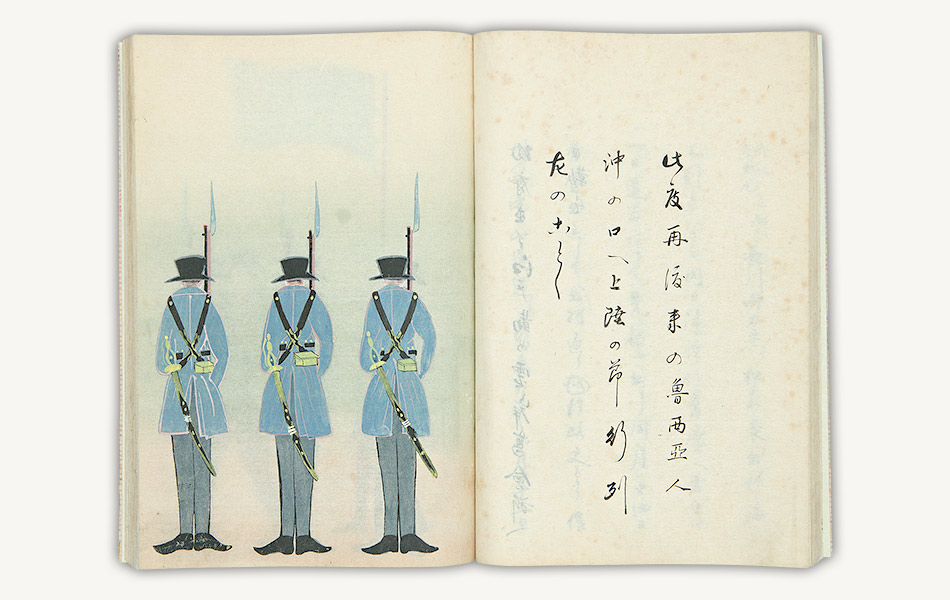 此度再渡来の魯西亜人
沖の口へ上陸の節行列
左のことく